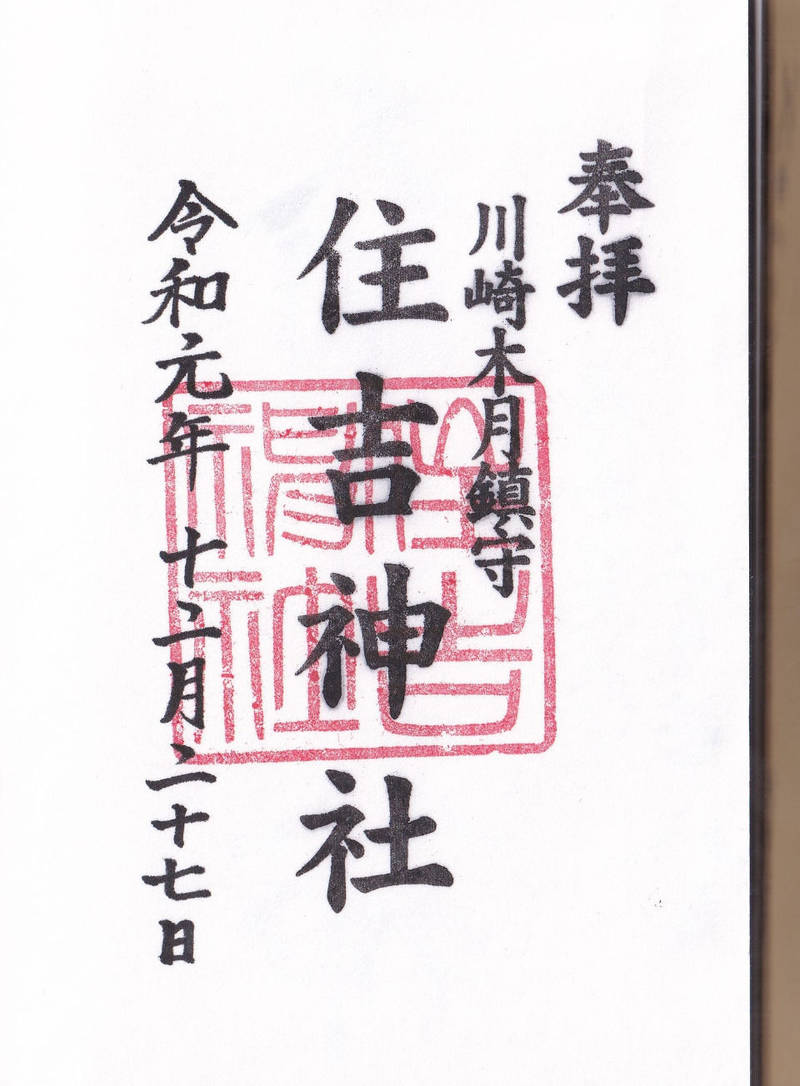 奉拝
川崎木月鎮守
住吉神社
令和元年 十二月二十七日
住吉神社